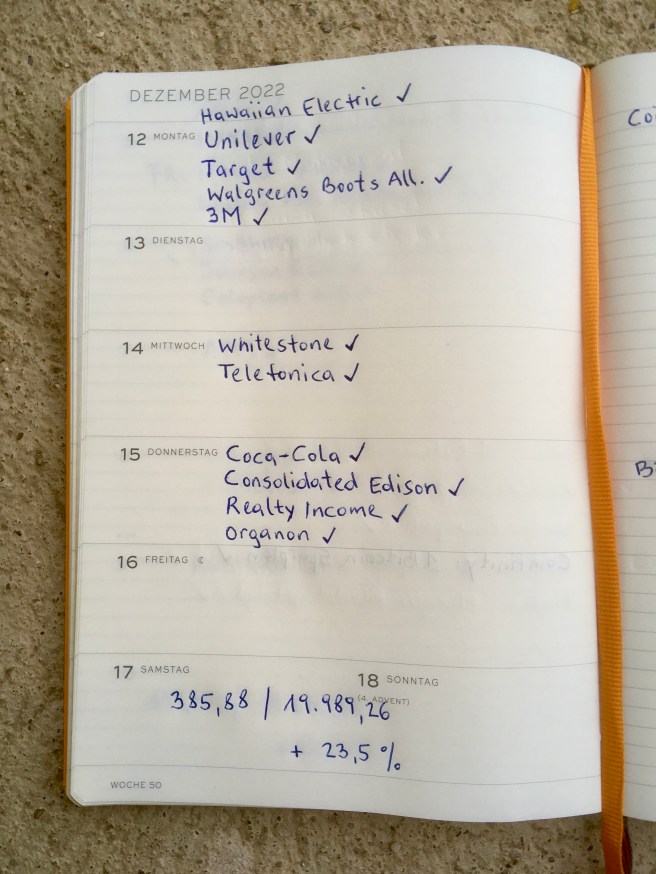 DEZEMBER 2022
Hawaiian Electric ✓
12 MONTAG Unilever ✓
Target ✓
Walgreens Boots All. ✓
3M ✓
13 DIENSTAG
14 MITTWOCH Whitestone ✓
Telefonica ✓
15 DONNERSTAG Coca-Cola ✓
Consolidated Edison ✓
Realty Income ✓
Organon ✓
16 FREITAG ☾
17 SAMSTAG
18 SONNTAG
(4. ADVENT)
385,88 | 19.989,26
+ 23,5 %
WOCHE 50